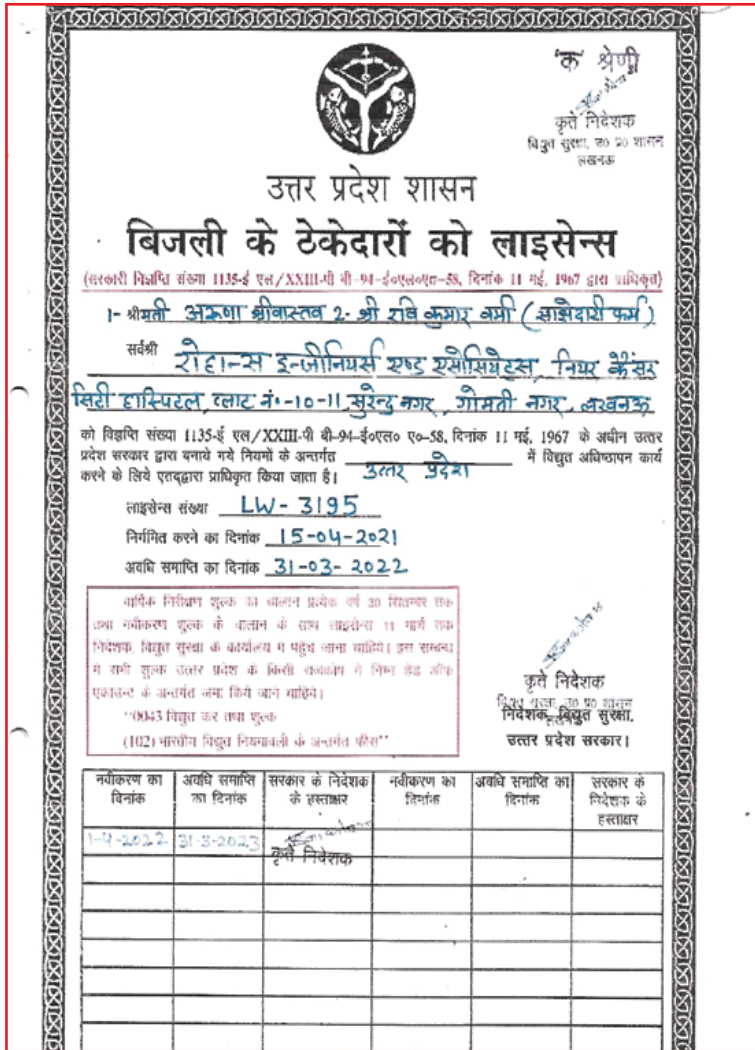 'क' श्रेणी
कृते निदेशक
विद्युत सुरक्षा, उ० प्र० शासन
लखनऊ
उत्तर प्रदेश शासन
बिजली के ठेकेदारों को लाइसेन्स
(सरकारी विज्ञप्ति संख्या 1135-ई एल/XXIII-पी बी-94-ई०एल०ए०-58, दिनांक 11 मई, 1967 द्वारा प्राधिकृत)
1- श्रीमती अरूणा श्रीवास्तव 2- श्री रवि कुमार वर्मा (साझेदारी फर्म)
सर्वश्री रोहान्स इन्जीनियर्स एण्ड एसोसियेट्स, नियर कैंसर
सिटी हास्पिटल, प्लाट नं०-10-11, सुरेन्द्र नगर, गोमती नगर, लखनऊ
को विज्ञप्ति संख्या 1135-ई एल/XXIII-पी बी-94-ई०एल० ए०-58, दिनांक 11 मई, 1967 के अधीन उत्तर
प्रदेश सरकार द्वारा बनाये गये नियमों के अन्तर्गत उत्तर प्रदेश में विद्युत अधिष्ठापन कार्य
करने के लिये एतद्द्वारा प्राधिकृत किया जाता है।
लाइसेन्स संख्या LW-3195
निर्गमित करने का दिनांक 15-04-2021
अवधि समाप्ति का दिनांक 31-03-2022
वार्षिक निरीक्षण शुल्क का चालान प्रत्येक वर्ष 30 सितम्बर तक
तथा नवीकरण शुल्क के चालान के साथ लाइसेन्स 11 मार्च तक
निदेशक, विद्युत सुरक्षा के कार्यालय में पहुँच जाना चाहिये। इस सम्बन्ध
में सभी शुल्क उत्तर प्रदेश के किसी राजकोष में निम्न हेड ऑफ
एकाउन्ट के अन्तर्गत जमा किये जाने चाहिये।
"0043 विद्युत कर तथा शुल्क
(102) भारतीय विद्युत नियमावली के अन्तर्गत फीस"
कृते निदेशक
विद्युत सुरक्षा, उ० प्र० शासन
निदेशक, विद्युत सुरक्षा,
उत्तर प्रदेश सरकार।
नवीकरण का दिनांक अवधि समाप्ति का दिनांक सरकार के निदेशक के हस्ताक्षर नवीकरण का दिनांक अवधि समाप्ति का दिनांक सरकार के निदेशक के हस्ताक्षर
1-4-2022 31-3-2023
कृते निदेशक